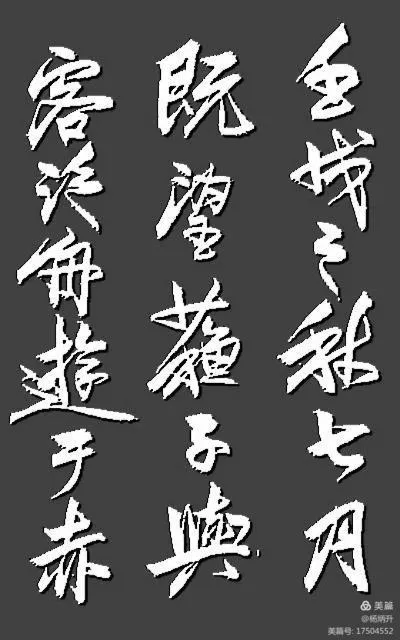 壬戌之秋七月
既望蘇子與
客泛舟遊于赤
美篇
@杨炳升
美篇号: 17504552